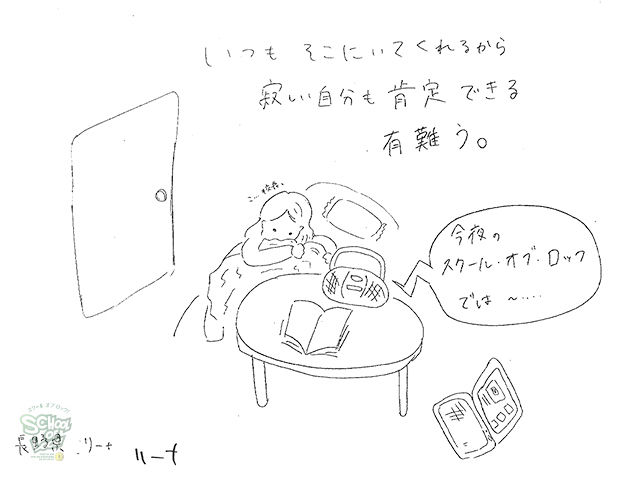 いつも そこにいてくれるから
寂しい自分も 肯定 できる
有難う。
こ…校長。
今夜の
スクール・オブ・ロック
では 〜‥‥
スクール オブ ロック!
SCHOOL
OF LOCK!
長野県 リーナ
リーナ